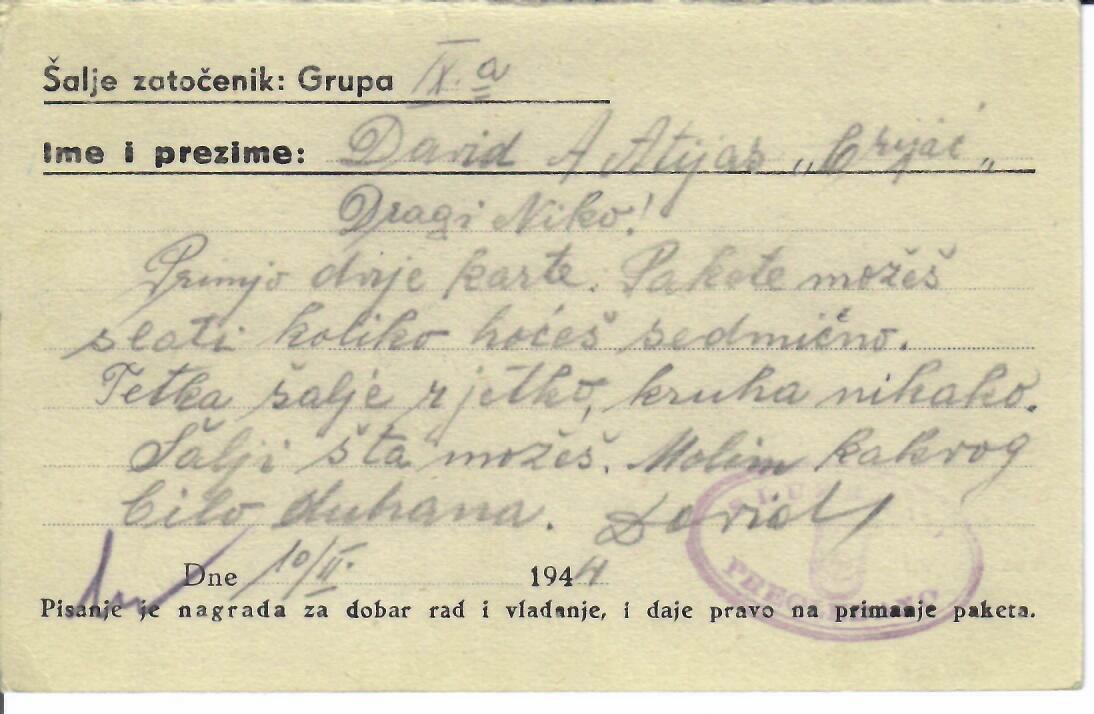 Šalje zatočenik: Grupa IX.a
Ime i prezime: David A Atijas
Dragi Niko!
Primjo dvje karte. Pakete možeš
slati koliko hoćeš sedmično.
Tetka šalje rjetko, kruha nikako.
Šalji šta možeš. Molim kakvog
bilo duhana. David
Dne 10/II. 1944
Pisanje je nagrada za dobar rad i vladanje, i daje pravo na primanje paketa.
PREGLEDANO